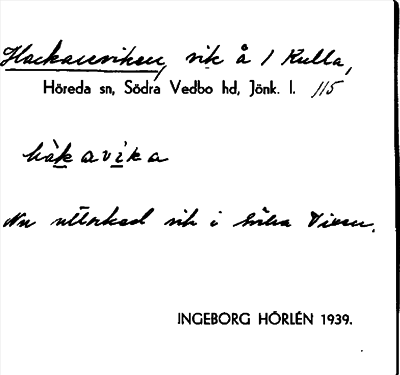 Hackareviken, vik å 1 Kulla,
Höreda sn, Södra Vedbo hd, Jönk. l. 115
håkavika
Nu uttorkad vik i Södra Vixen.
INGEBORG HÖRLÉN 1939.